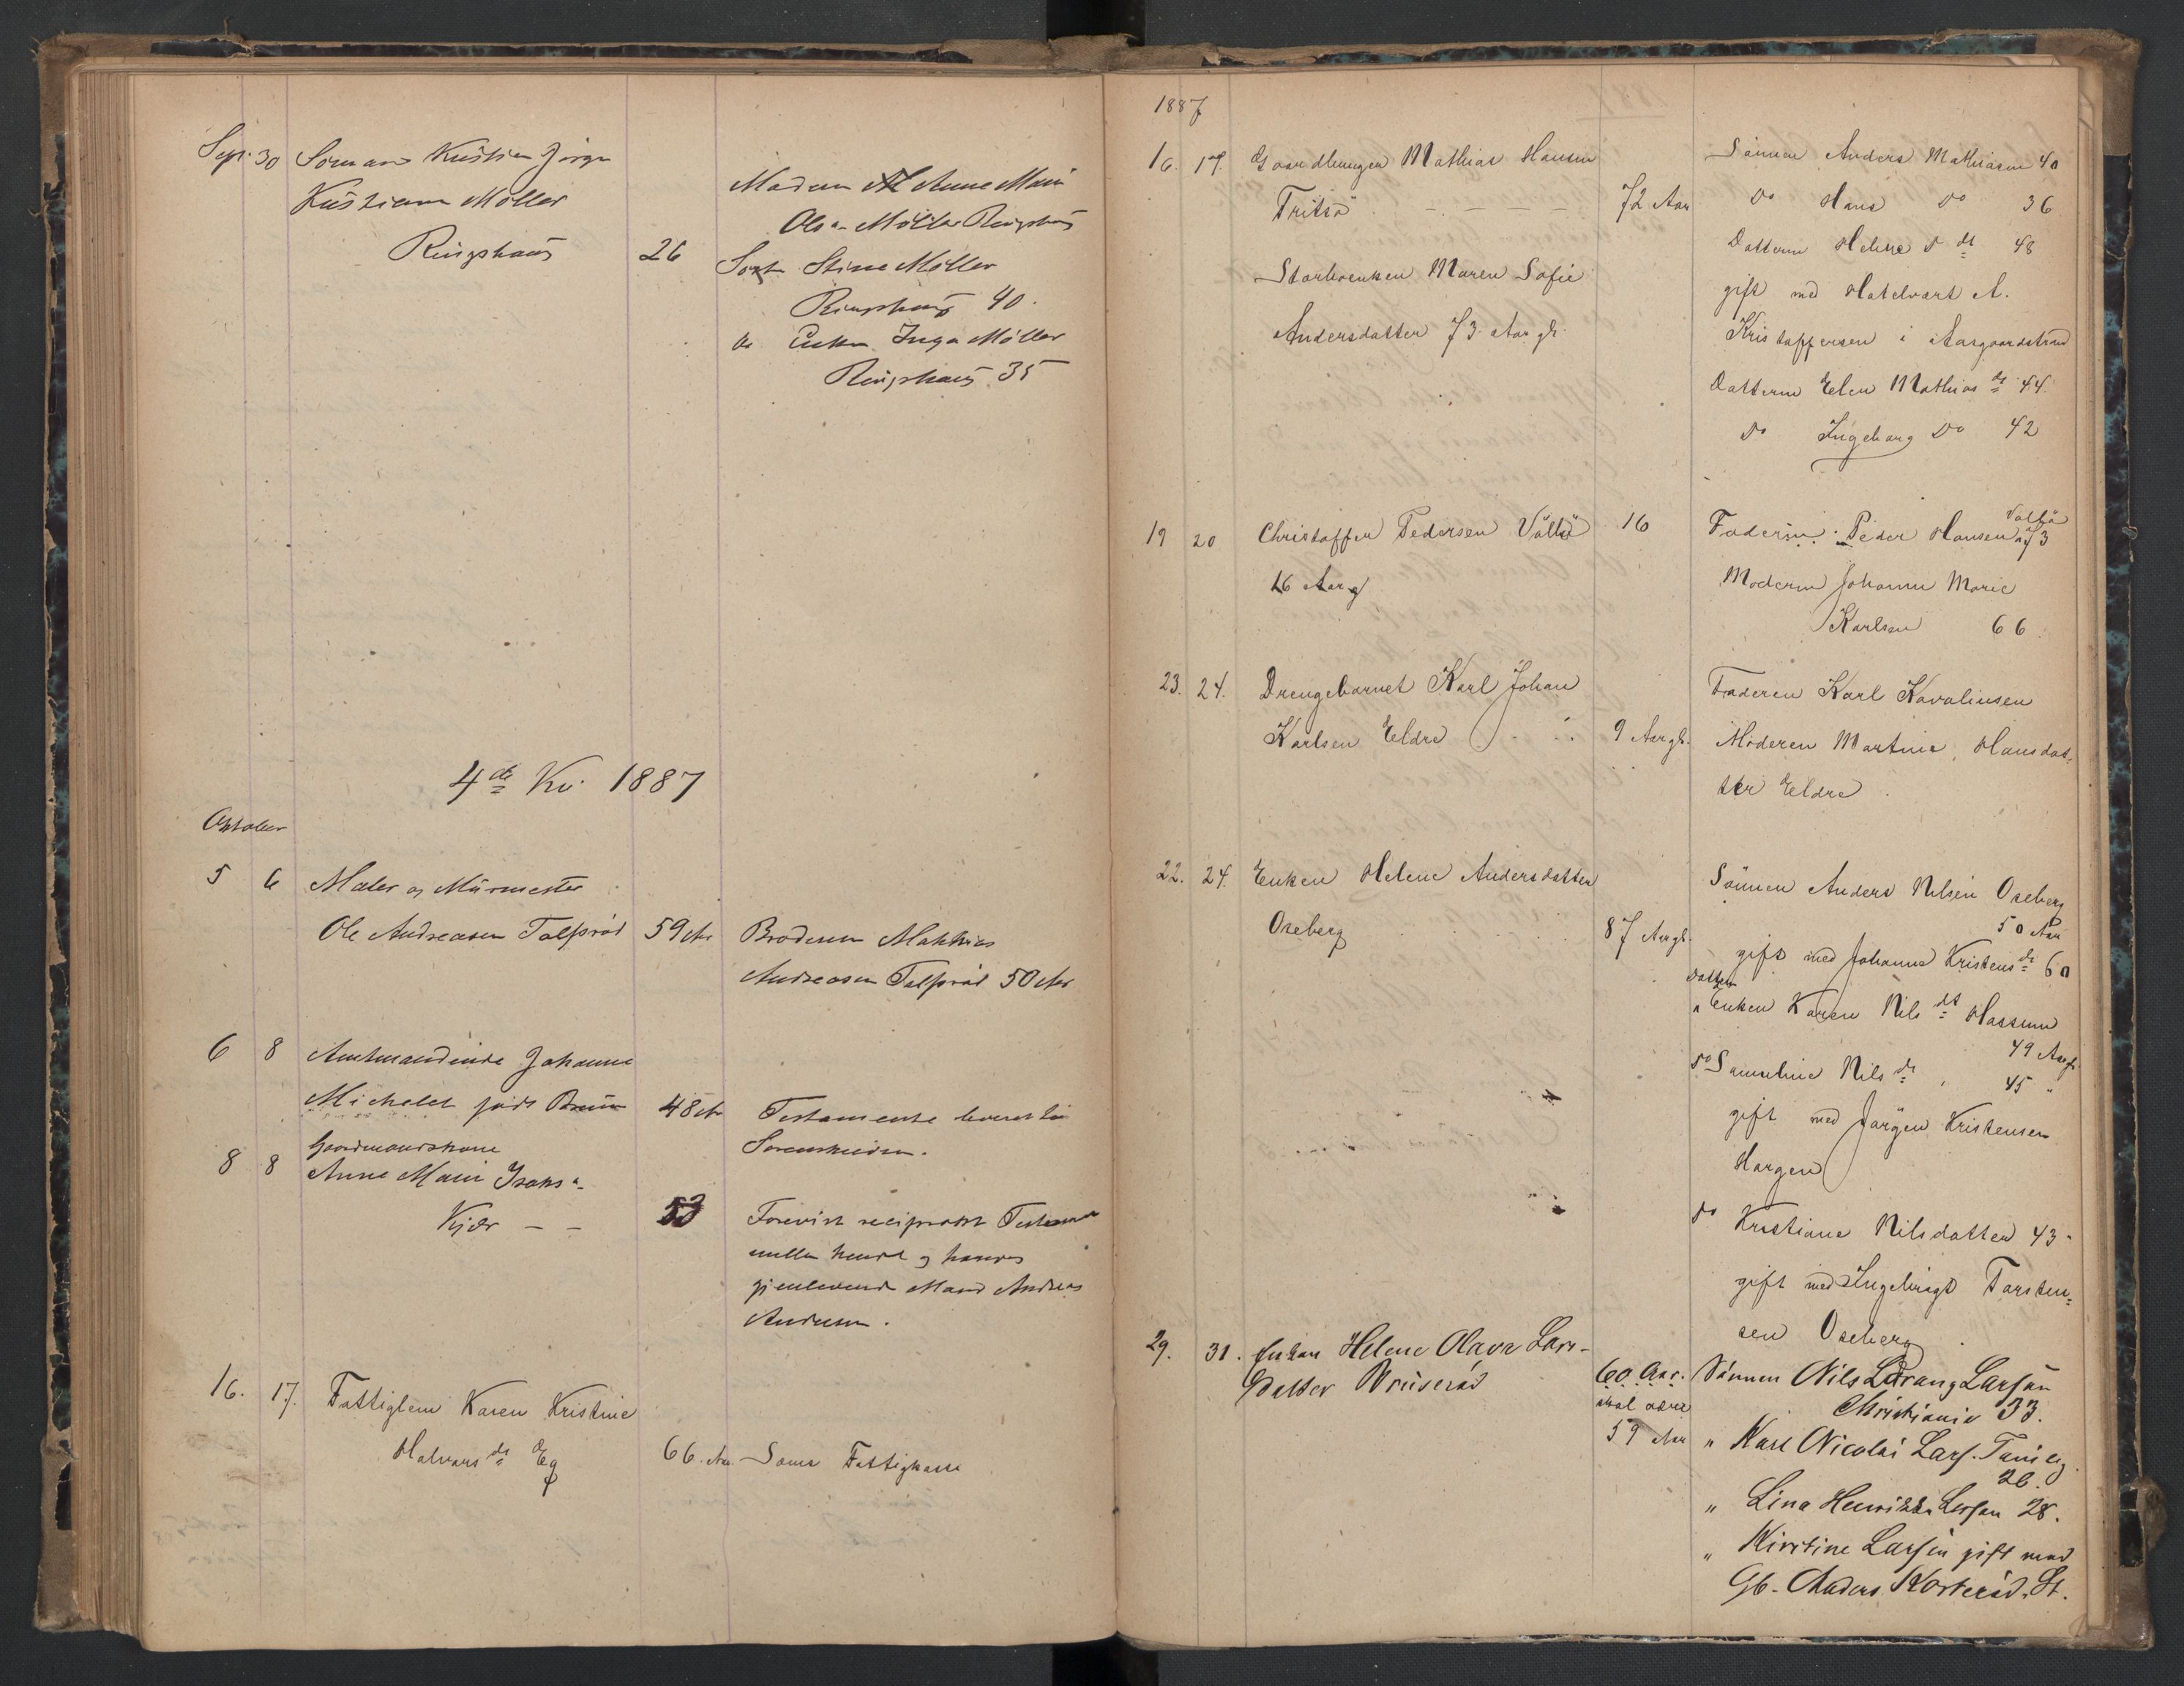 Sept. 30 Sömand Kristian Jörgen
Kristiansen Möller
Ringshaug 26
Modern Anne Marie
Olsn Möller Ringshaug
Söst Stine Möller
Ringshaug 40.
do Enken Inga Möller
Ringshaug 35
4de Kv. 1887
Oktober
5 6 Maler og Murmester
Ole Andreasen Tolfsröd 59 Ar
Broderen Mathias
Andreasen Tolfsröd 50 Ar
6 8 Amtmandinde Johanne
Michelet föd Bruun 48 Ar
Testamente leveret til
Sorenskriveren.
8 8 Gaardmandskone
Anne Marie Isaksn
Kjær — — 53
Forevist reciprokt Testament
mellem hende og hendes
gjenlevende Mand Andreas
Andersen.
16. 17. Fattiglem Karen Kristine
Halvorsdt Eg 66. Aar Sems Fattigkasse
1887
16. 19. Gaardbruger Mathias Hansen
Tritsö — — — — 72 Aar
Storboenken Maren Sofie
Andersdatter 73 Aar gl.
Sönnen Anders Mathiasen 40
Do Hans Do 36
Datteren Helene M dt 48
gift med Matelvart A.
Kristoffersen i Aasgaardstrand
Datteren Elen Mathias dt 44.
Do Ingeborg Do 42
19 20 Christoffer Pedersen Vallö 16
16 Aar g
Vallö
Faderen Peder Hansen 73
Moderen Johanne Marie
Karlsen 66
23. 24. Drengebarnet Karl Johan
Karlsen Eldre 9 Aar gl.
Faderen Karl Karolinsen
Moderen Martine Hansdat-
ter Eldre.
22. 24. Enken Helene Andersdatter
Oseberg 87 Aar gl.
Sönnen Anders Nilsen Oseberg
50 Aar
gift med Johanne Kristensdt 60
Datter
" Enken Karen Nils dt Hassum
49 Aar
Do Samueline Nils dt 45 "
gift med Jörgen Kristensen
Hargen
Do Kristiane Nilsdatter 43
gift med Ingebrigt Torsten-
sen Oseberg
29. 31. Enken Helene Olava Lars-
Datter Bruseröd 60 Aar.
skal være
59 Aar
Sönnen Nils Larsen
Christiania 33.
" Karl Nicolai Lars.
26.
" Lina Henrikke Larsen 28.
" Kirstine Larsen gift med
Gb. Anders St.